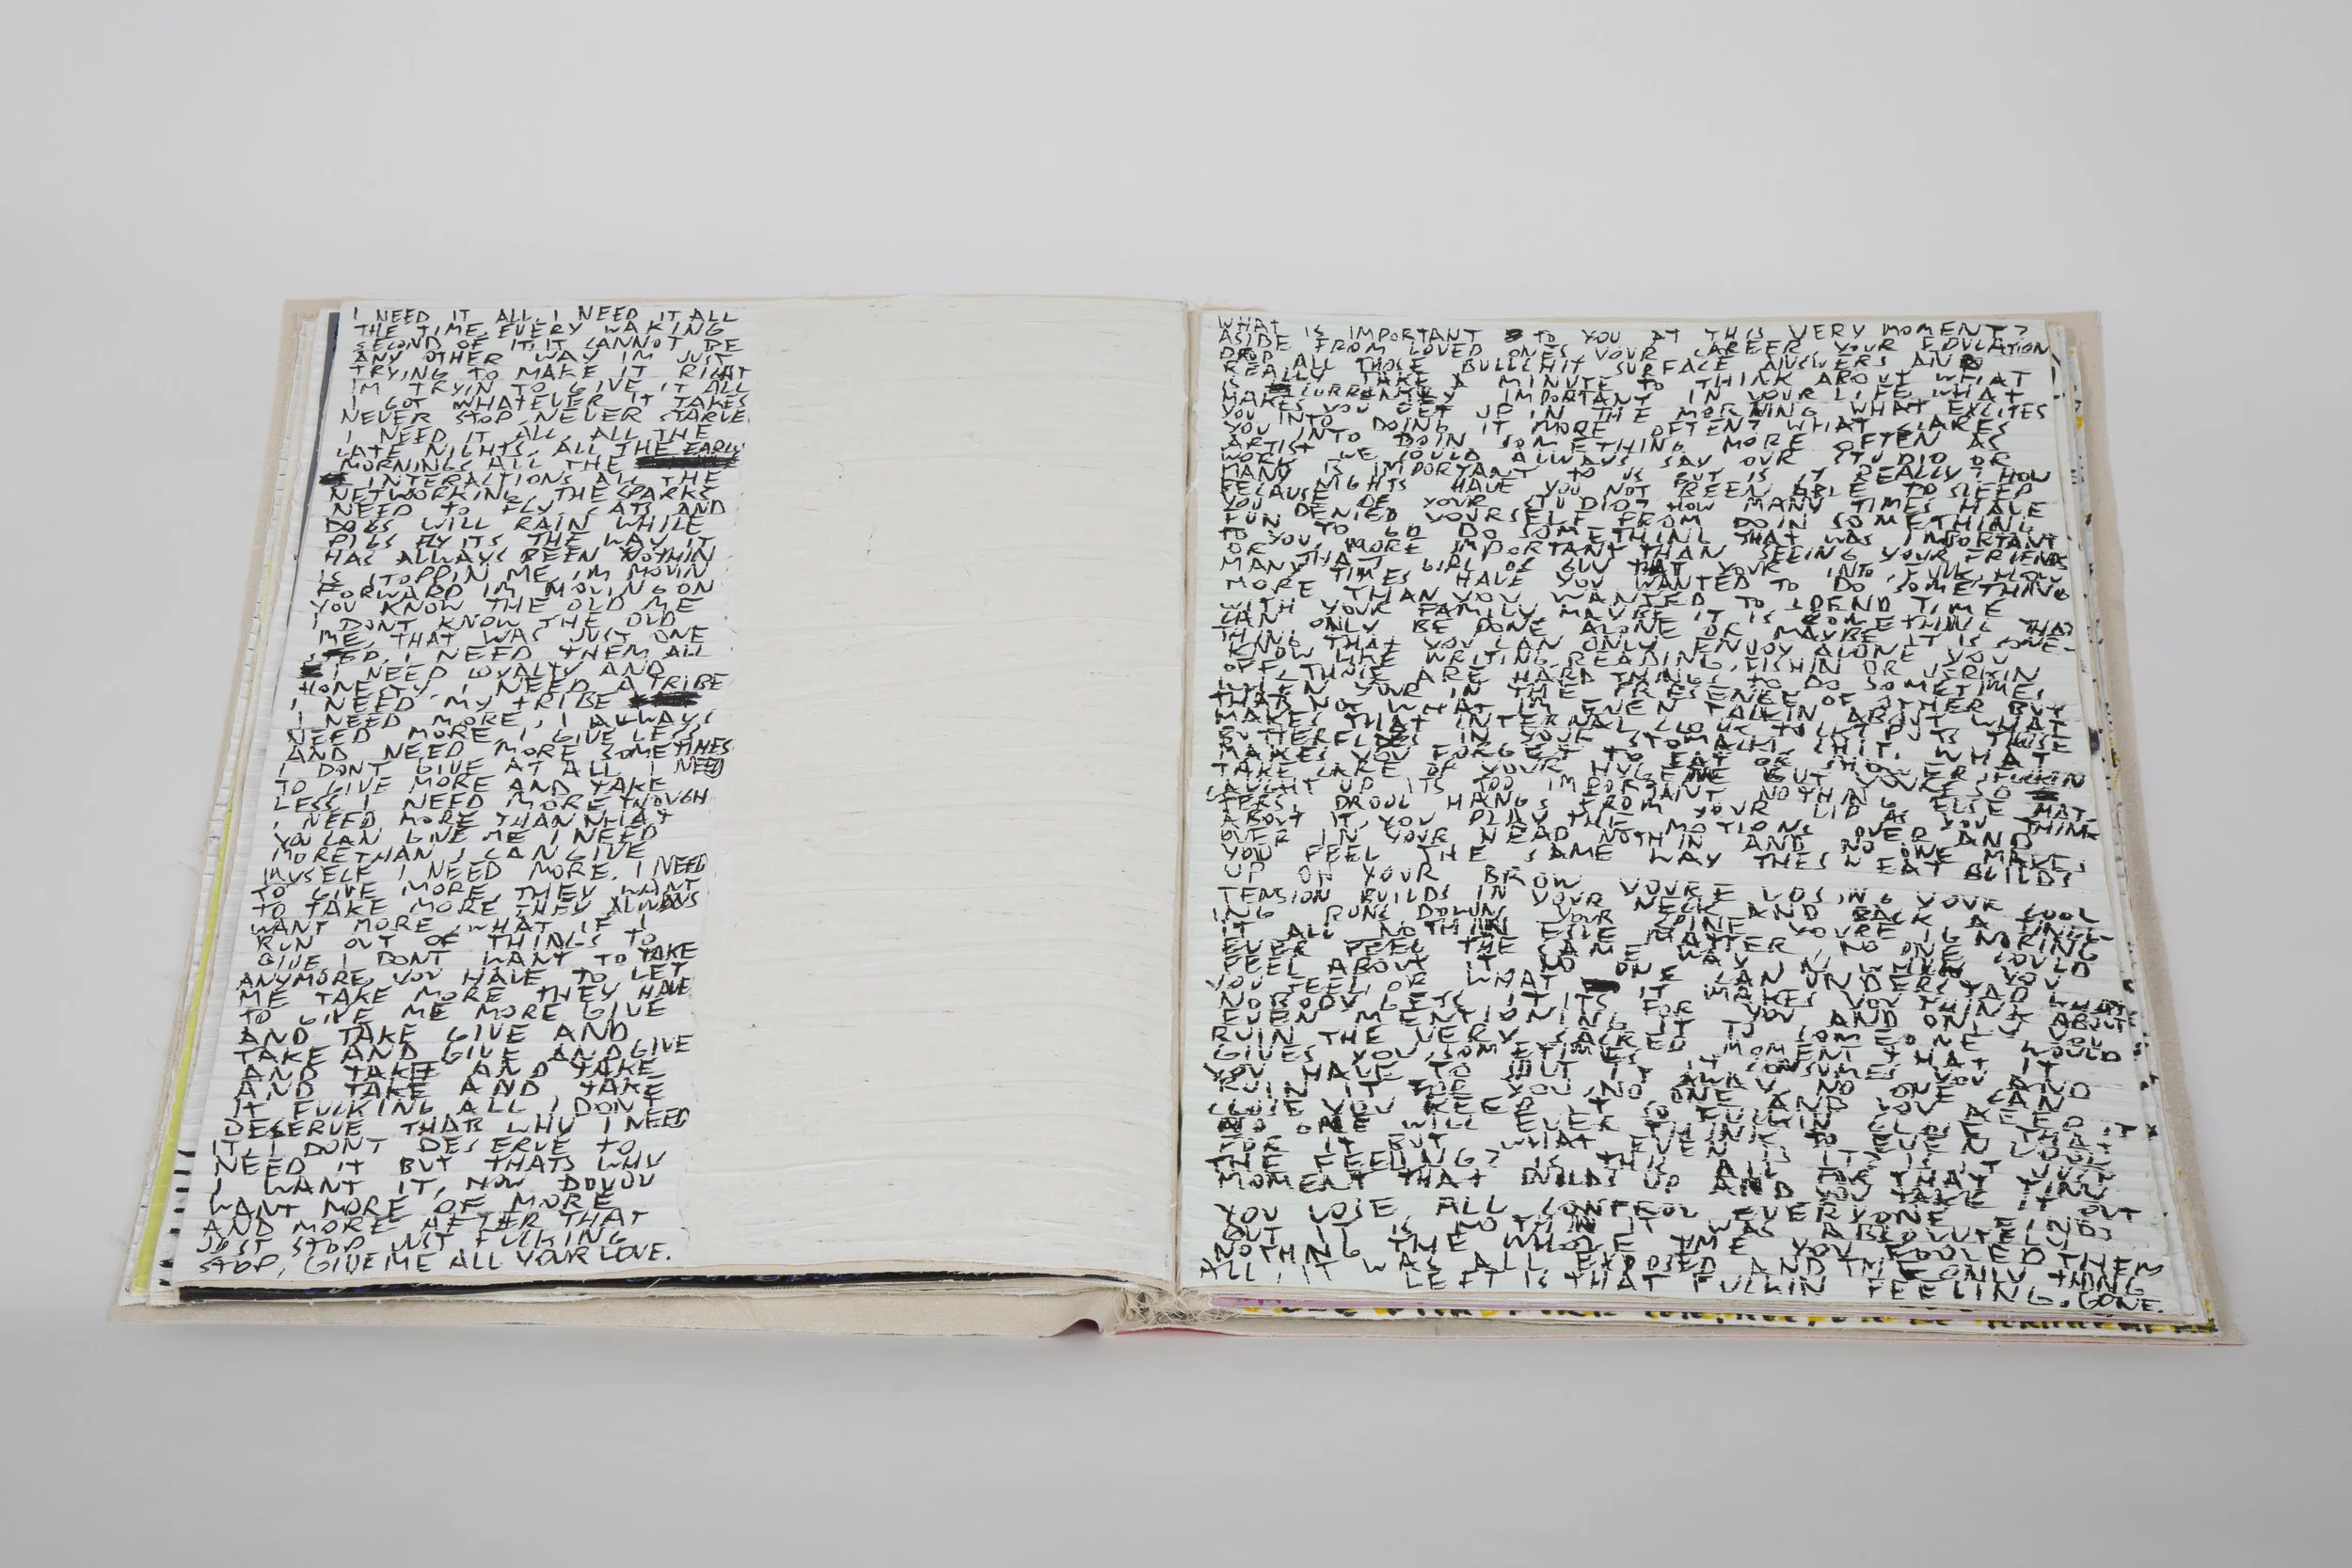 I NEED IT ALL, I NEED IT ALL
THE TIME, EVERY WAKING
SECOND OF IT, IT CANNOT BE
ANY OTHER WAY IM JUST
TRYING TO MAKE IT RIGHT
IM TRYIN TO GIVE IT ALL
I GOT WHATEVER IT TAKES
NEVER STOP, NEVER STARVE
I NEED IT ALL, ALL THE
LATE NIGHTS, ALL THE EARLY
MORNINGS ALL THE
INTERACTIONS ALL THE
NETWORKING, THE SPARKS
NEED TO FLY, CATS AND
DOGS WILL RAIN WHILE
PIGS FLY ITS THE WAY IT
HAS ALWAYS BEEN NOTHIN
IS STOPPIN ME, IM MOVIN
FORWARD IM MOVING ON
YOU KNOW THE OLD ME
I DONT KNOW THE OLD
ME, THAT WAS JUST ONE
I NEED THEM ALL
I NEED LOYALTY AND
HONESTY, I NEED A TRIBE
I NEED MY TRIBE
I NEED MORE, I ALWAYS
NEED MORE, I GIVE LESS
AND NEED MORE SOMETIMES
I DONT GIVE AT ALL I NEED
TO GIVE MORE AND TAKE
LESS I NEED MORE THOUGH
I NEED MORE THAN WHAT
YOU CAN GIVE ME I NEED
MORE THAN I CAN GIVE
MYSELF I NEED MORE. I NEED
TO GIVE MORE, THEY WANT
TO TAKE MORE THEY ALWAYS
WANT MORE, WHAT IF I
RUN OUT OF THINGS TO
GIVE I DONT WANT TO TAKE
ANYMORE YOU HAVE TO LET
ME TAKE MORE THEY HAVE
TO GIVE ME MORE GIVE
AND TAKE GIVE AND
TAKE AND GIVE AND GIVE
AND TAKE AND TAKE
AND TAKE AND TAKE
IT FUCKING ALL I DONT
DESERVE THATS WHY I NEED
IT, I DONT DESERVE TO
NEED IT BUT THATS WHY
I WANT IT, NOW DO YOU
WANT MORE OF MORE
AND MORE AFTER THAT
JUST STOP JUST FUCKING
STOP, GIVE ME ALL YOUR LOVE.
WHAT IS IMPORTANT TO YOU AT THIS VERY MOMENT?
ASIDE FROM LOVED ONES YOUR CAREER YOUR EDUCATION
DROP ALL THOSE BULLSHIT SURFACE ANSWERS AND
REALLY TAKE A MINUTE TO THINK ABOUT WHAT
IS CURRENTLY IMPORTANT IN YOUR LIFE, WHAT
MAKES YOU GET UP IN THE MORNING WHAT EXCITES
YOU INTO DOING IT MORE OFTEN? WHAT
YOU INTO DOIN SOMETHING MORE OFTEN AS
ARTIST WE COULD ALWAYS SAY OUR STUDIO OR
WORK IS IMPORTANT TO US BUT IS IT REALLY? HOW
MANY NIGHTS HAVE YOU NOT BEEN ABLE TO SLEEP
BECAUSE OF YOUR STUDIO? HOW MANY TIMES HAVE
YOU DENIED YOURSELF FROM DOIN SOMETHING
FUN TO GO DO SOMETHING THAT WAS IMPORTANT
TO YOU MORE IMPORTANT THAN SEEING YOUR FRIENDS
OR THAT GIRL OR GUY THAT YOUR INTO, FUCK, HOW
MANY TIMES HAVE YOU WANTED TO DO SOMETHING
MORE THAN YOU WANTED TO SPEND TIME
WITH YOUR FAMILY, MAYBE IT IS SOMETHING THAT
CAN ONLY BE DONE ALONE OR MAYBE IT IS SOME-
THING THAT YOU CAN ONLY ENJOY ALONE YOU
KNOW LIKE WRITING, READING, FISHIN OR JERKIN
OFF, THOSE ARE HARD THINGS TO DO SOMETIMES
WHEN YOUR IN THE PRESENCE OF OTHER BUT
THATS NOT WHAT IM EVEN TALKIN ABOUT WHAT
MAKES THAT INTERNAL CLOCK TICK, PUTS THOSE
BUTTERFLIES IN YOUR STOMACH, SHIT, WHAT
MAKES YOU FORGET TO EAT OR SHOWER, FUCKIN
TAKE CARE OF YOUR HYGIENE BUT YOUR SO
CAUGHT UP, ITS TOO IMPORTANT NOTHING ELSE MAT-
TERS, DROOL HANGS FROM YOUR LIP AS YOU THINK
ABOUT IT, YOU PLAY THE MOTIONS OVER AND
OVER IN YOUR HEAD NOTHIN AND NO ONE MAKES
YOU FEEL THE SAME WAY THE SWEAT BUILDS
UP ON YOUR BROW YOURE LOSING YOUR COOL
TENSION BUILDS IN YOUR NECK AND BACK A TINGL-
ING RUNS DOWN YOUR SPINE YOURE IGNORING
IT ALL NOTHIN ELSE MATTER, NO ONE COULD
EVER FEEL THE SAME WAY
FEEL ABOUT IT NO ONE CAN UNDERSTAND
YOU FEEL, OR WHAT IT MAKES YOU THINK ABOUT
NOBODY GETS IT ITS FOR YOU AND ONLY YOU
EVEN MENTIONING IT TO SOMEONE WOULD
RUIN THE VERY SACRED MOMENT THAT IT
GIVES YOU, SOMETIMES IT CONSUMES YOU AND
YOU HAVE TO NO ONE CAN
RUIN IT FOR YOU, NO ONE
CLOSE YOU KEEP IT SO FUCKIN
NO ONE WILL EVER THINK TO EVEN
FOR IT BUT WHAT EVEN IS IT, IS IT JUST
THE FEELING? IS THIS ALL FOR THAT TINY
MOMENT THAT BUILDS UP AND YOU TAKE IT OUT
YOU LOSE ALL CONTROL EVERYONE FINDS
OUT IT IS NOTHIN IT WAS ABSOLUTELY
NOTHING THE WHOLE TIME YOU FOOLED THEM
ALL, IT WAS ALL EXPOSED AND THE ONLY THING
LEFT IS THAT FUCKIN FEELING. GONE.